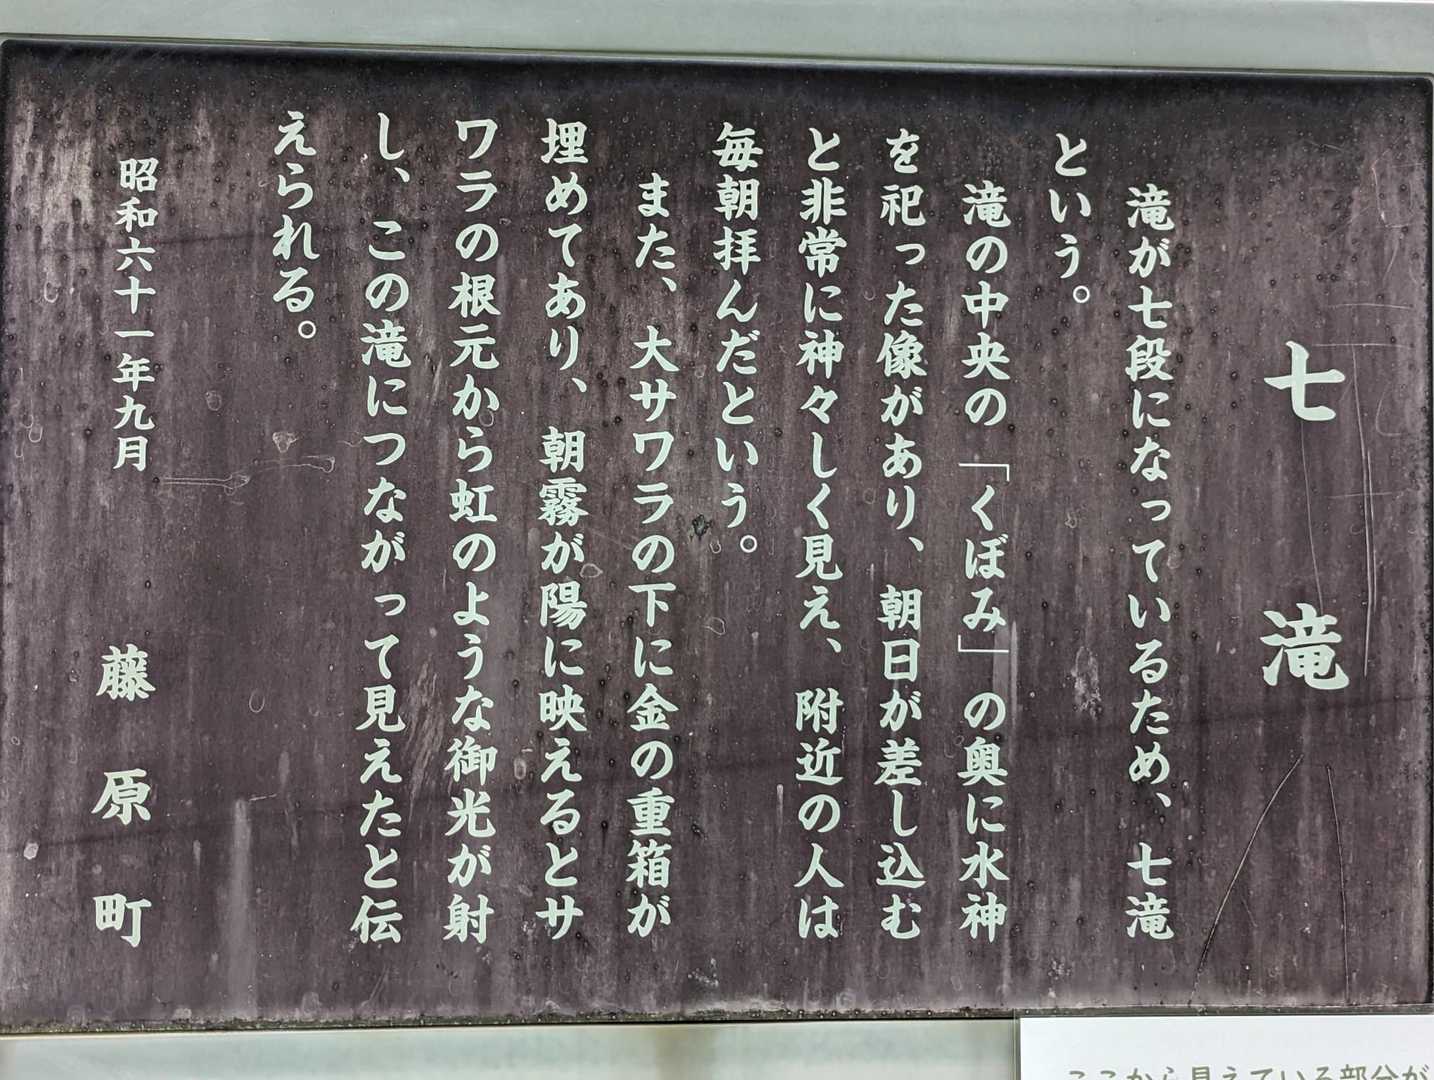 七滝
滝が七段になっているため、七滝
という。
滝の中央の「くぼみ」の奥に水神
を祀った像があり、朝日が差し込む
と非常に神々しく見え、附近の人は
毎朝拝んだという。
また、大サワラの下に金の重箱が
埋めてあり、朝霧が陽に映えるとサ
ワラの根元から虹のような御光が射
し、この滝につながって見えたと伝
えられる。
昭和六十一年九月
藤原町
ここから見えている部分が